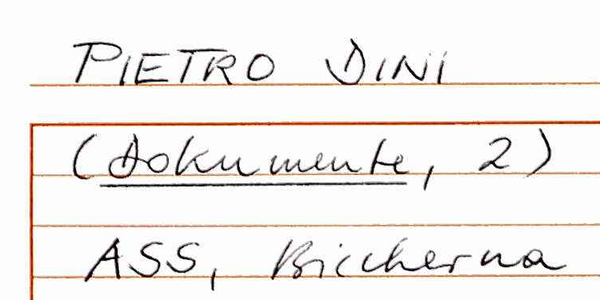 PIETRO DINI
(Dokumente, 2)
ASS, Biccherna